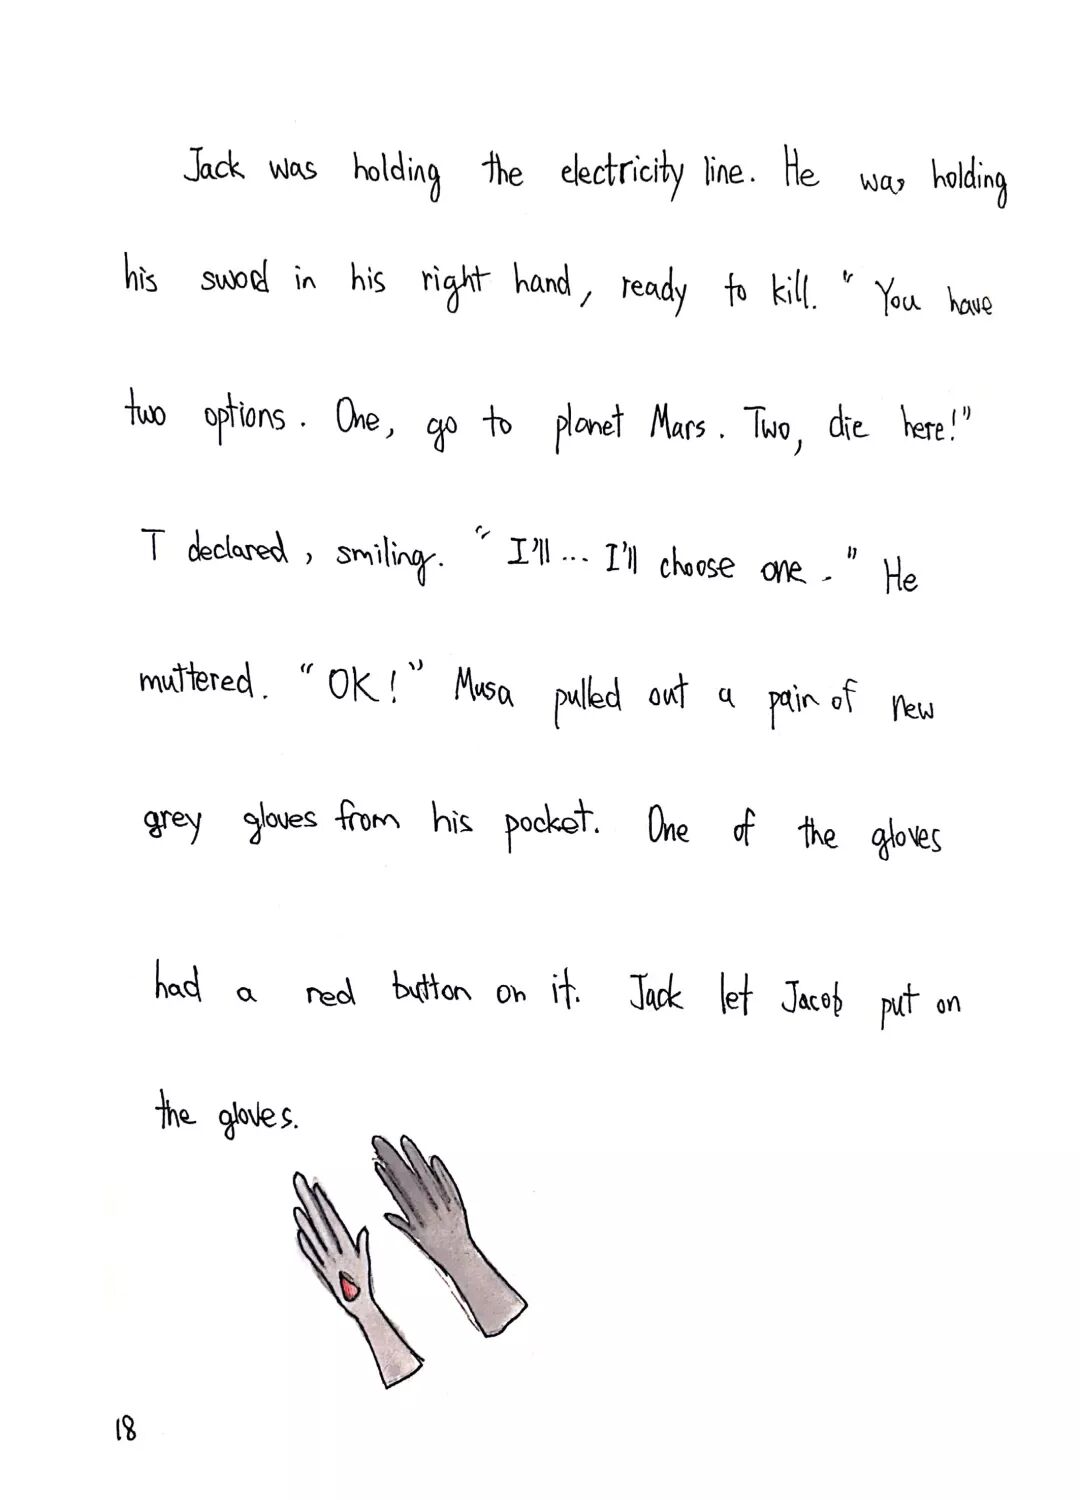 Jack was holding the electricity line. He was holding
his sword in his right hand, ready to kill. "You have
two options. One, go to planet Mars. Two, die here!"
T declared, smiling. "I'll... I'll choose one." He
muttered. "OK!" Musa pulled out a pain of new
grey gloves from his pocket. One of the gloves
had a red button on it. Jack let Jacob put on
the gloves.
18